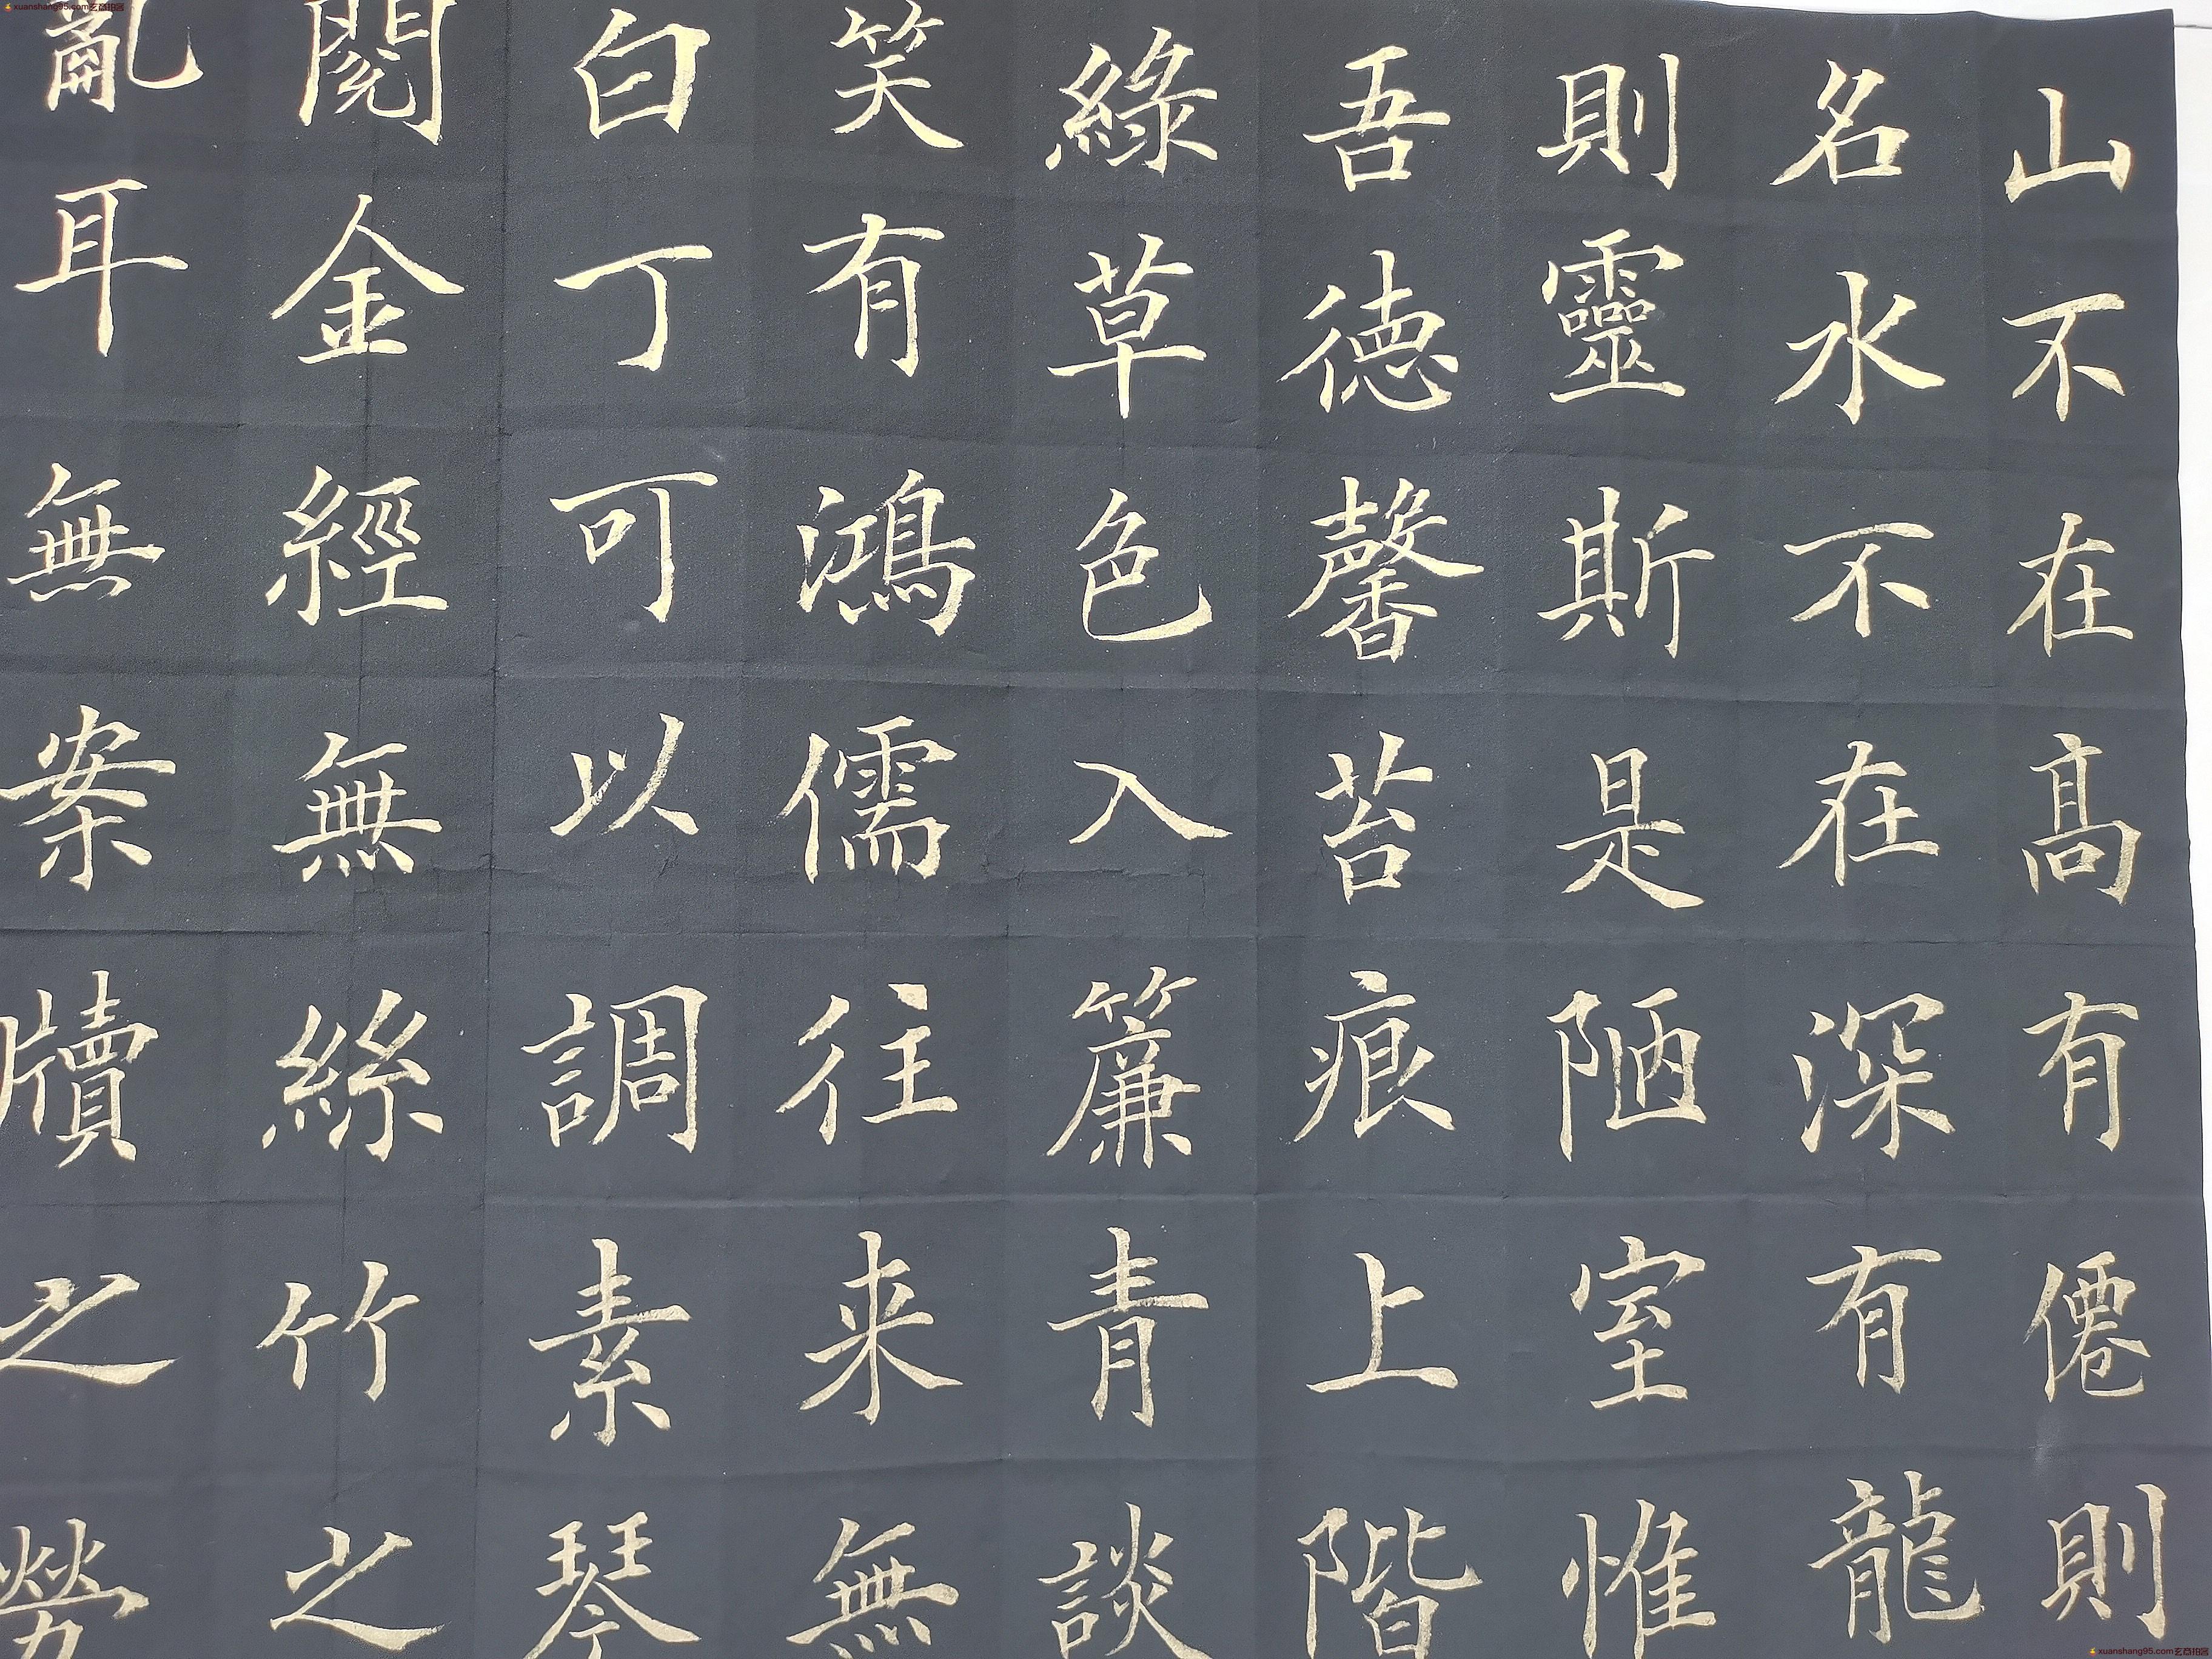 山不在高有僊則
名水不在深有龍
則靈斯是陋室惟
吾德馨苔痕上階
綠草色入簾青談
笑有鴻儒往来無
白丁可以調素琴
閱金經無絲竹之
亂耳無案牘之勞
xuanshang95.com
xuanshang95.com